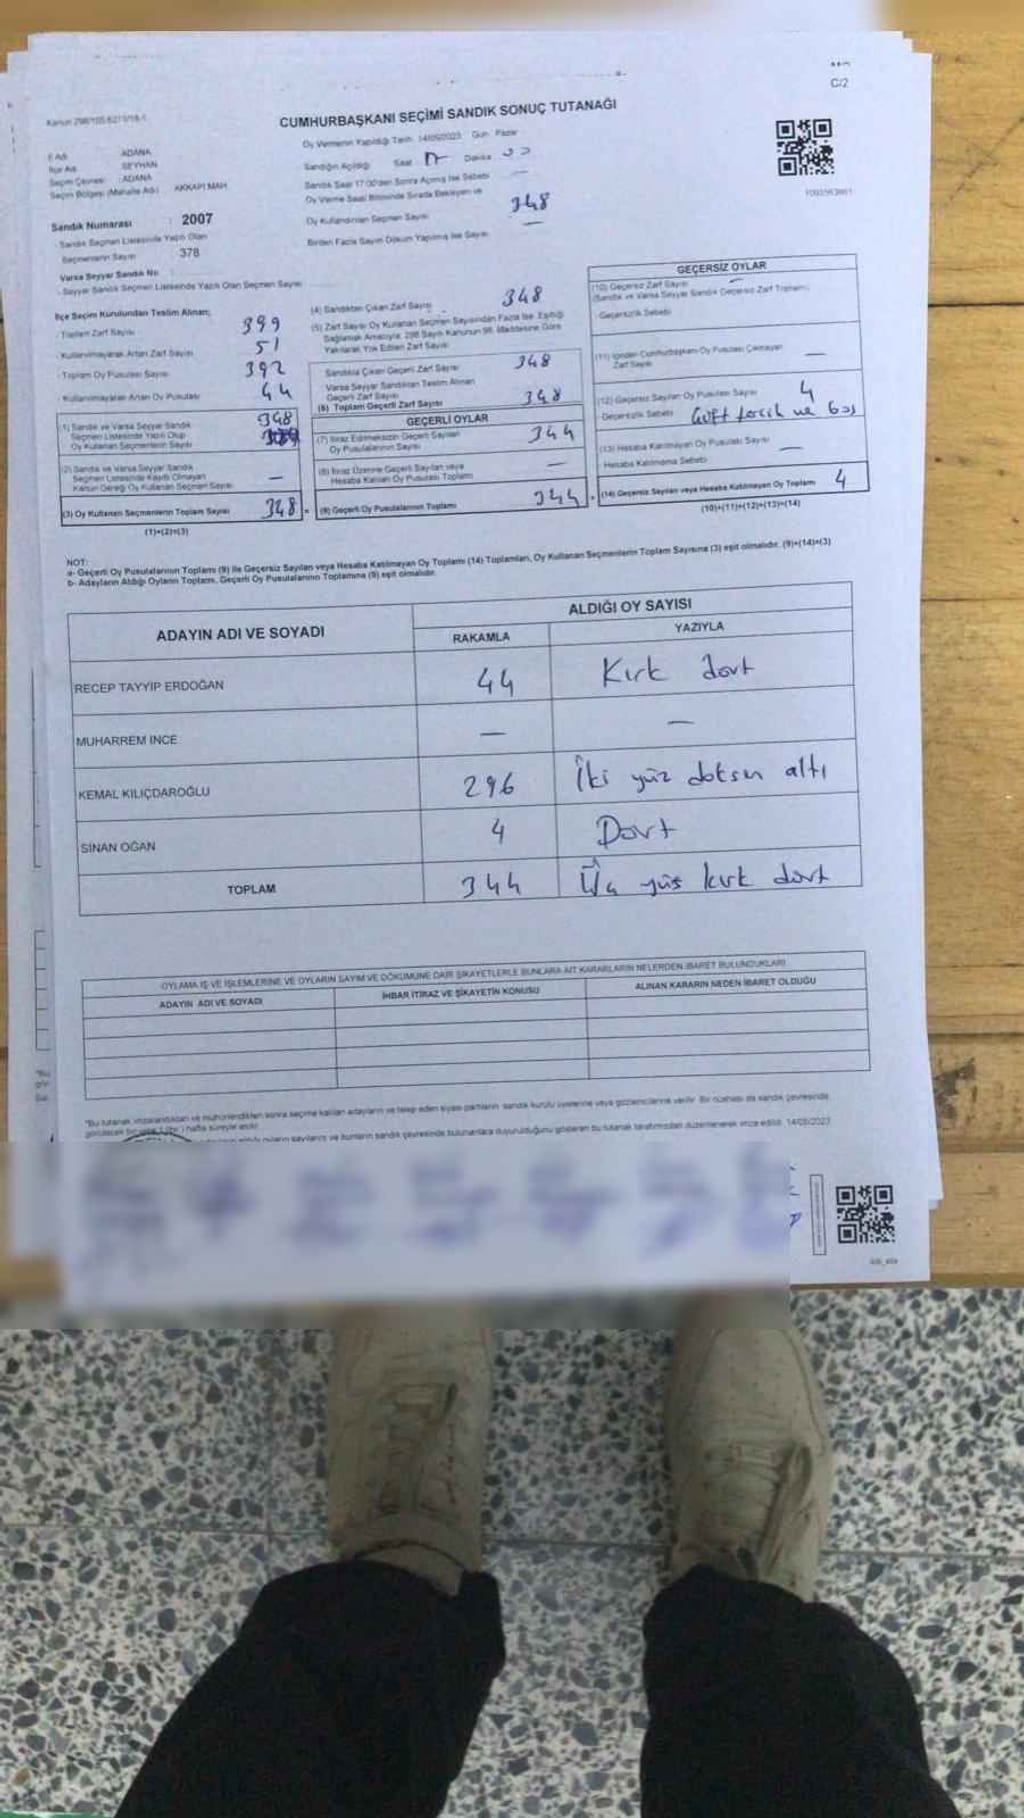 C/2
Kanun 298/105 6271/18-1
CUMHURBAŞKANI SEÇİMİ SANDIK SONUÇ TUTANAĞI
Oy Vermenin Yapıldığı Tarih 14/05/2023 Gün Pazar
İl Adı ADANA
İlçe Adı SEYHAN
Seçim Çevresi : ADANA
Seçim Bölgesi (Mahalle Adı) AKKAPI MAH
Sandığın Açıldığı Saat 17 Dakika
Sandık Saat 17:00'den Sonra Açılmış İse Sebebi —
Oy Verme Saati Bitiminde Sırada Bekleyen ve
Oy Kullandırılan Seçmen Sayısı 348
Birden Fazla Sayım Döküm Yapılmış İse Sayısı —
Sandık Numarası : 2007
- Sandık Seçmen Listesinde Yazılı Olan
Seçmenlerin Sayısı 378
Varsa Seyyar Sandık No :
- Seyyar Sandık Seçmen Listesinde Yazılı Olan Seçmen Sayısı
İlçe Seçim Kurulundan Teslim Alınan;
- Toplam Zarf Sayısı 399
- Kullanılmayarak Artan Zarf Sayısı 51
- Toplam Oy Pusulası Sayısı 392
- Kullanılmayarak Artan Oy Pusulası 44
(1) Sandık ve Varsa Seyyar Sandık
Seçmen Listesinde Yazılı Olup
Oy Kullanan Seçmenlerin Sayısı 348
(2) Sandık ve Varsa Seyyar Sandık
Seçmen Listesinde Kayıtlı Olmayan
Kanun Gereği Oy Kullanan Seçmen Sayısı —
(3) Oy Kullanan Seçmenlerin Toplam Sayısı 348
(1)+(2)=(3)
(4) Sandıktan Çıkan Zarf Sayısı 348
(5) Zarf Sayısı Oy Kullanan Seçmen Sayısından Fazla İse, Eşitliği
Sağlamak Amacıyla, 298 Sayılı Kanunun 98. Maddesine Göre
Yakılarak Yok Edilen Zarf Sayısı
Sandıkta Çıkan Geçerli Zarf Sayısı 348
Varsa Seyyar Sandıktan Teslim Alınan
Geçerli Zarf Sayısı
(6) Toplam Geçerli Zarf Sayısı 348
GEÇERLİ OYLAR
(7) İtiraz Edilmeksizin Geçerli Sayılan
Oy Pusulalarının Sayısı 344
(8) İtiraz Üzerine Geçerli Sayılan veya
Hesaba Katılan Oy Pusulası Toplamı —
(9) Geçerli Oy Pusulalarının Toplamı 344
GEÇERSİZ OYLAR
(10) Geçersiz Zarf Sayısı —
(Sandık ve Varsa Seyyar Sandık Geçersiz Zarf Toplamı)
- Geçersizlik Sebebi
(11) İçinden Cumhurbaşkanı Oy Pusulası Çıkmayan
Zarf Sayısı —
(12) Geçersiz Sayılan Oy Pusulası Sayısı 4
- Geçersizlik Sebebi Çift tercih ve boş
(13) Hesaba Katılmayan Oy Pusulası Sayısı —
Hesaba Katılmama Sebebi
(14) Geçersiz Sayılan veya Hesaba Katılmayan Oy Toplamı 4
(10)+(11)+(12)+(13)=(14)
NOT:
a- Geçerli Oy Pusulalarının Toplamı (9) ile Geçersiz Sayılan veya Hesaba Katılmayan Oy Toplamı (14) Toplamları, Oy Kullanan Seçmenlerin Toplam Sayısına (3) eşit olmalıdır. (9)+(14)=(3)
b- Adayların Aldığı Oyların Toplamı, Geçerli Oy Pusulalarının Toplamına (9) eşit olmalıdır.
ADAYIN ADI VE SOYADI
ALDIĞI OY SAYISI
RAKAMLA YAZIYLA
RECEP TAYYİP ERDOĞAN 44 Kırk dört
MUHARREM İNCE — —
KEMAL KILIÇDAROĞLU 296 İki yüz doksan altı
SİNAN OĞAN 4 Dört
TOPLAM 344 Üç yüz kırk dört
OYLAMA İŞ VE İŞLEMLERİNE VE OYLARIN SAYIM VE DÖKÜMÜNE DAİR ŞİKAYETLERLE BUNLARA AİT KARARLARIN NELERDEN İBARET BULUNDUKLARI
ADAYIN ADI VE SOYADI İHBAR İTİRAZ VE ŞİKAYETİN KONUSU ALINAN KARARIN NEDEN İBARET OLDUĞU